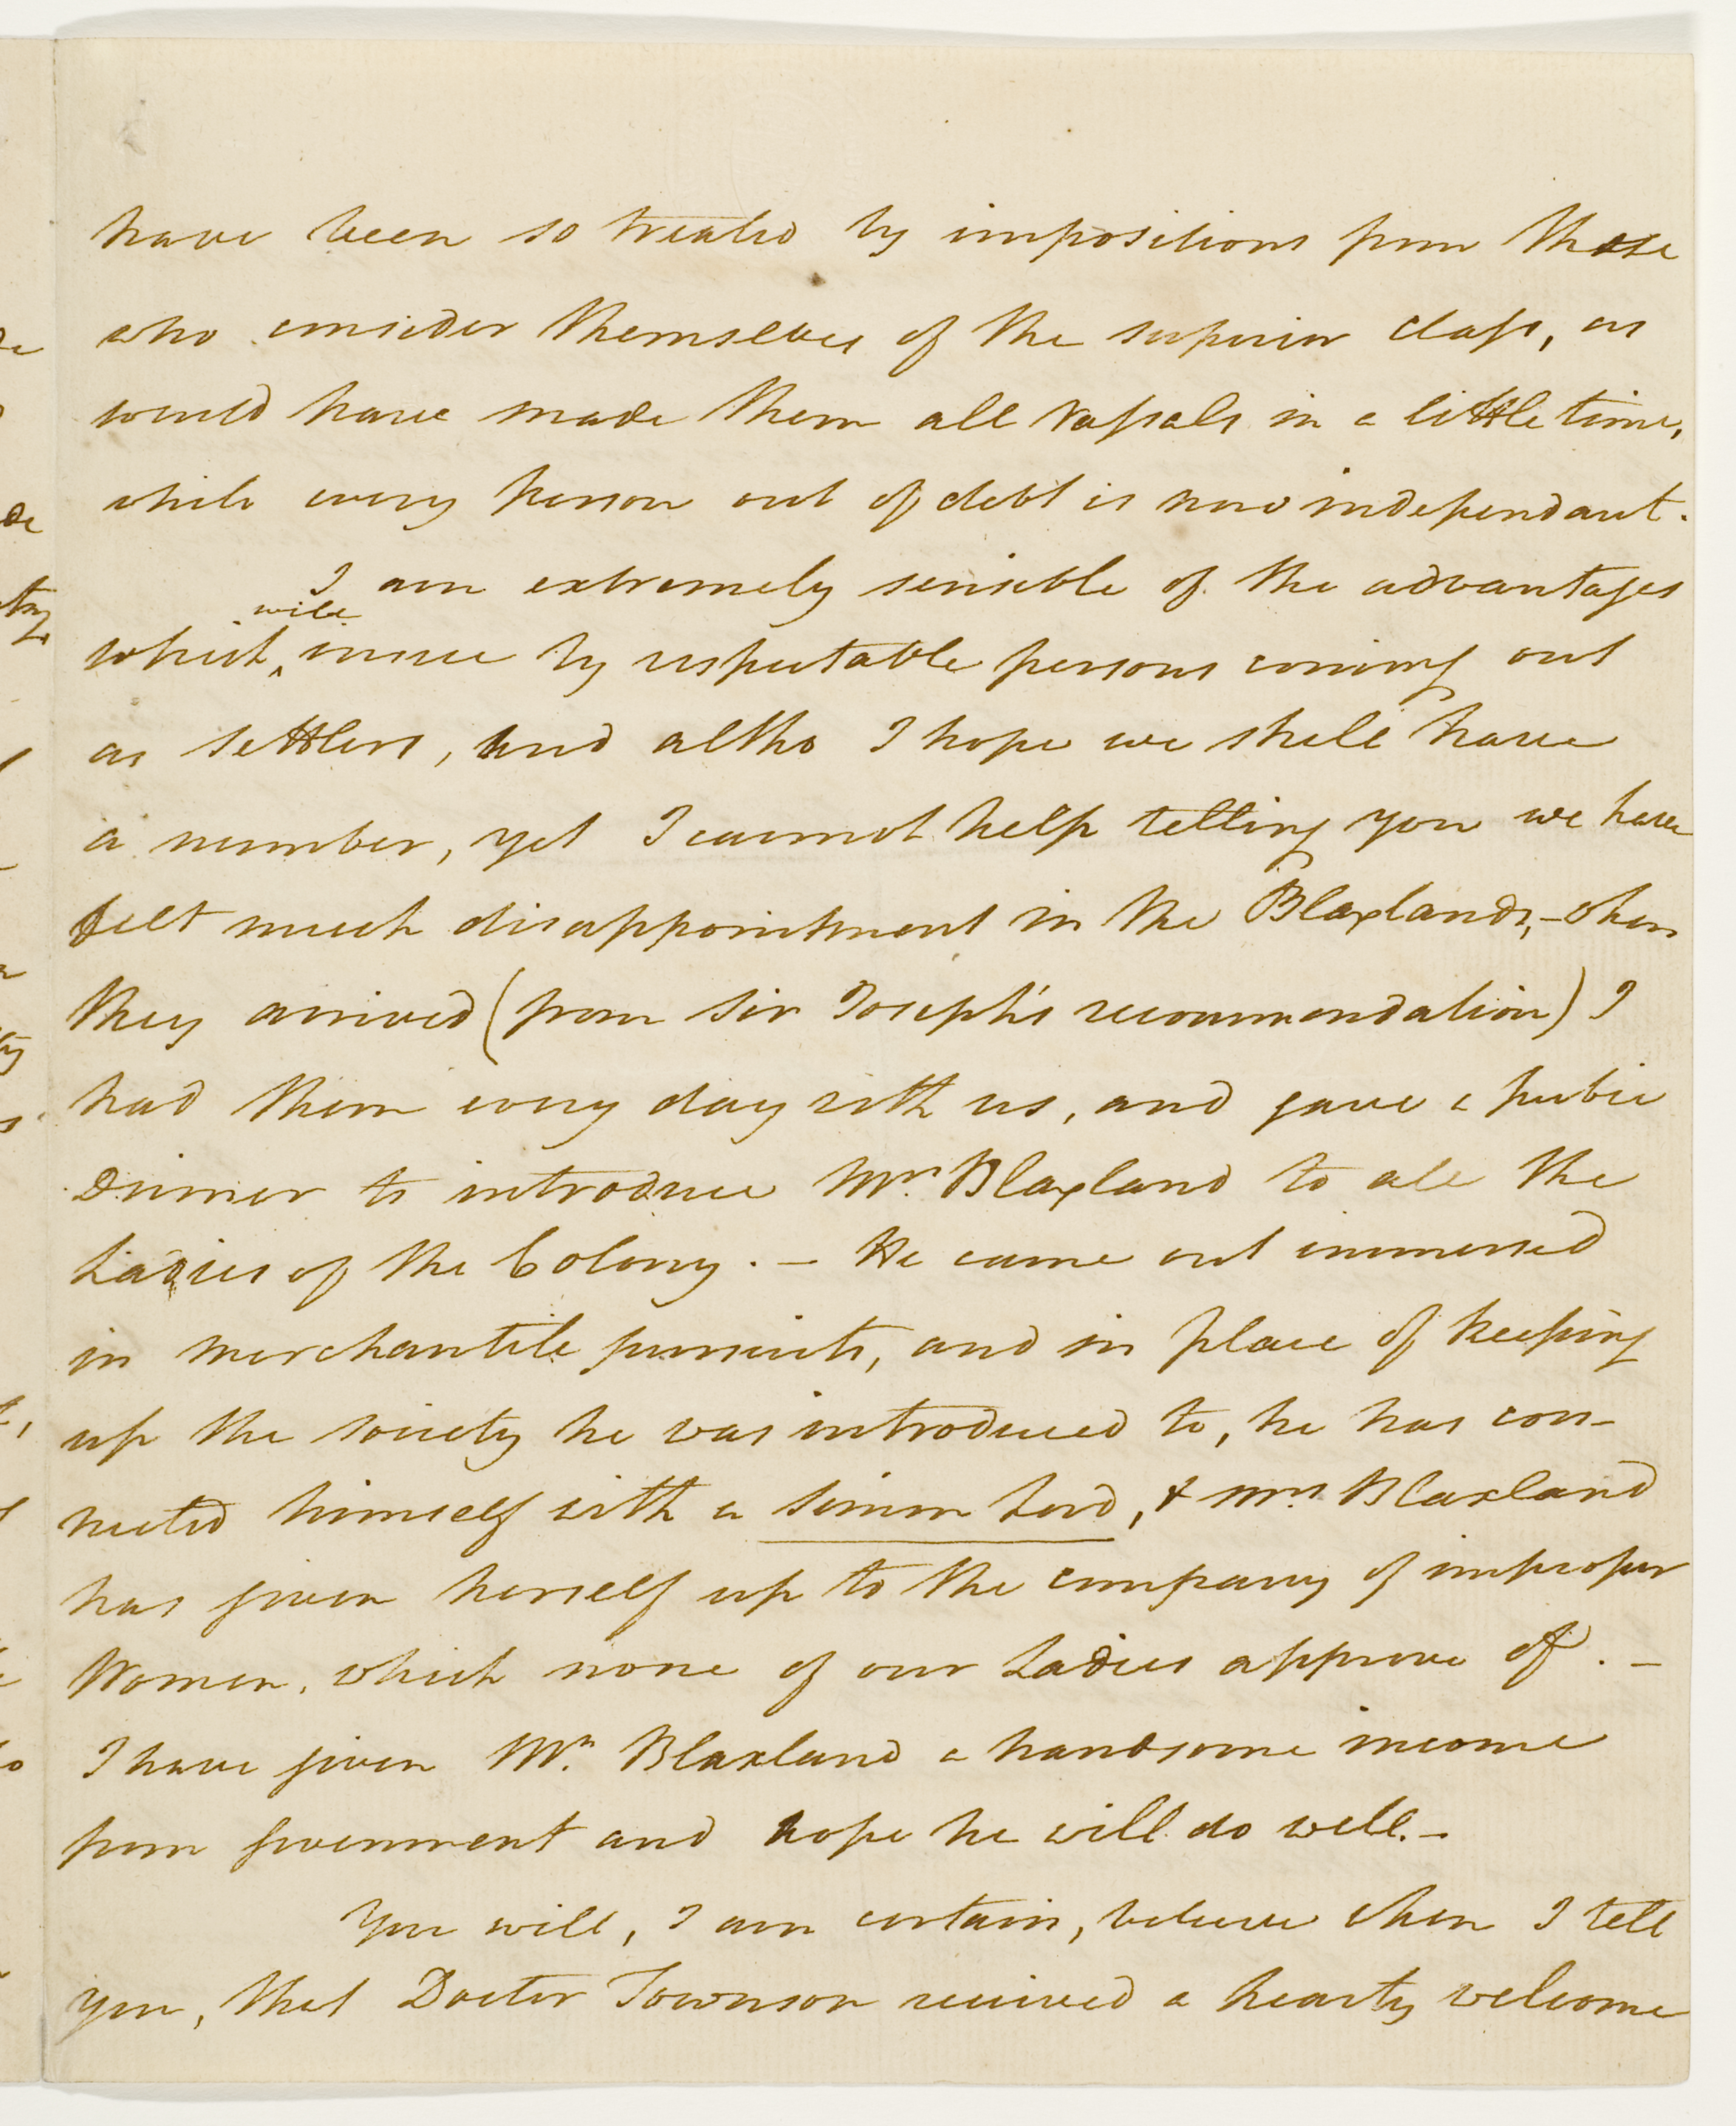 have been so treated by impositions from those
who consider themselves of the superior class, as
would have made them all Vassals in a little time,
while every person out of debt is now independant.
I am extremely sensible of the advantages
will
which ^ insue by respectable persons coming out
as settlers, and altho I hope we shall have
a number, yet I cannot help telling you we have
felt much disappointment in the Blaxlands, - when
they arrived (from Sir Joseph's recommendation) I
had them every day with us, and gave a public
Dinner to introduce Mrs. Blaxland to all the
Ladies of the Colony. - He came out immersed
in merchantile pursuits, and in place of keeping
up the society he was introduced to, he has con-
nected himself with a Simon Lord, & Mrs. Blaxland
has given herself up to the company of improper
Women, which none of our Ladies approve of. -
I have given Mr. Blaxland a handsome income
from government and hope he will do well. -
You will, I am certain, believe when I tell
you, that Doctor Townson received a hearty welcome